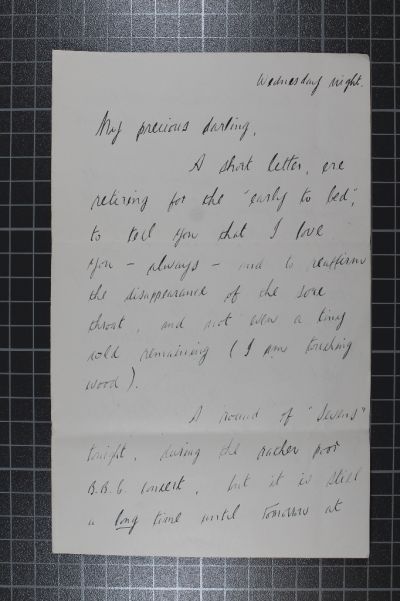 Wednesday night.
My precious darling,
A short letter, ere
retiring for the "early to bed",
to tell you that I love
you - always - and to reaffirm
the disappearance of the sore
throat, and not even a tiny
cold remaining (I am touching
wood).
A round of "Sevens"
tonight, during the rather poor
B.B.C. concert, but it is still
a long time until tomorrow at